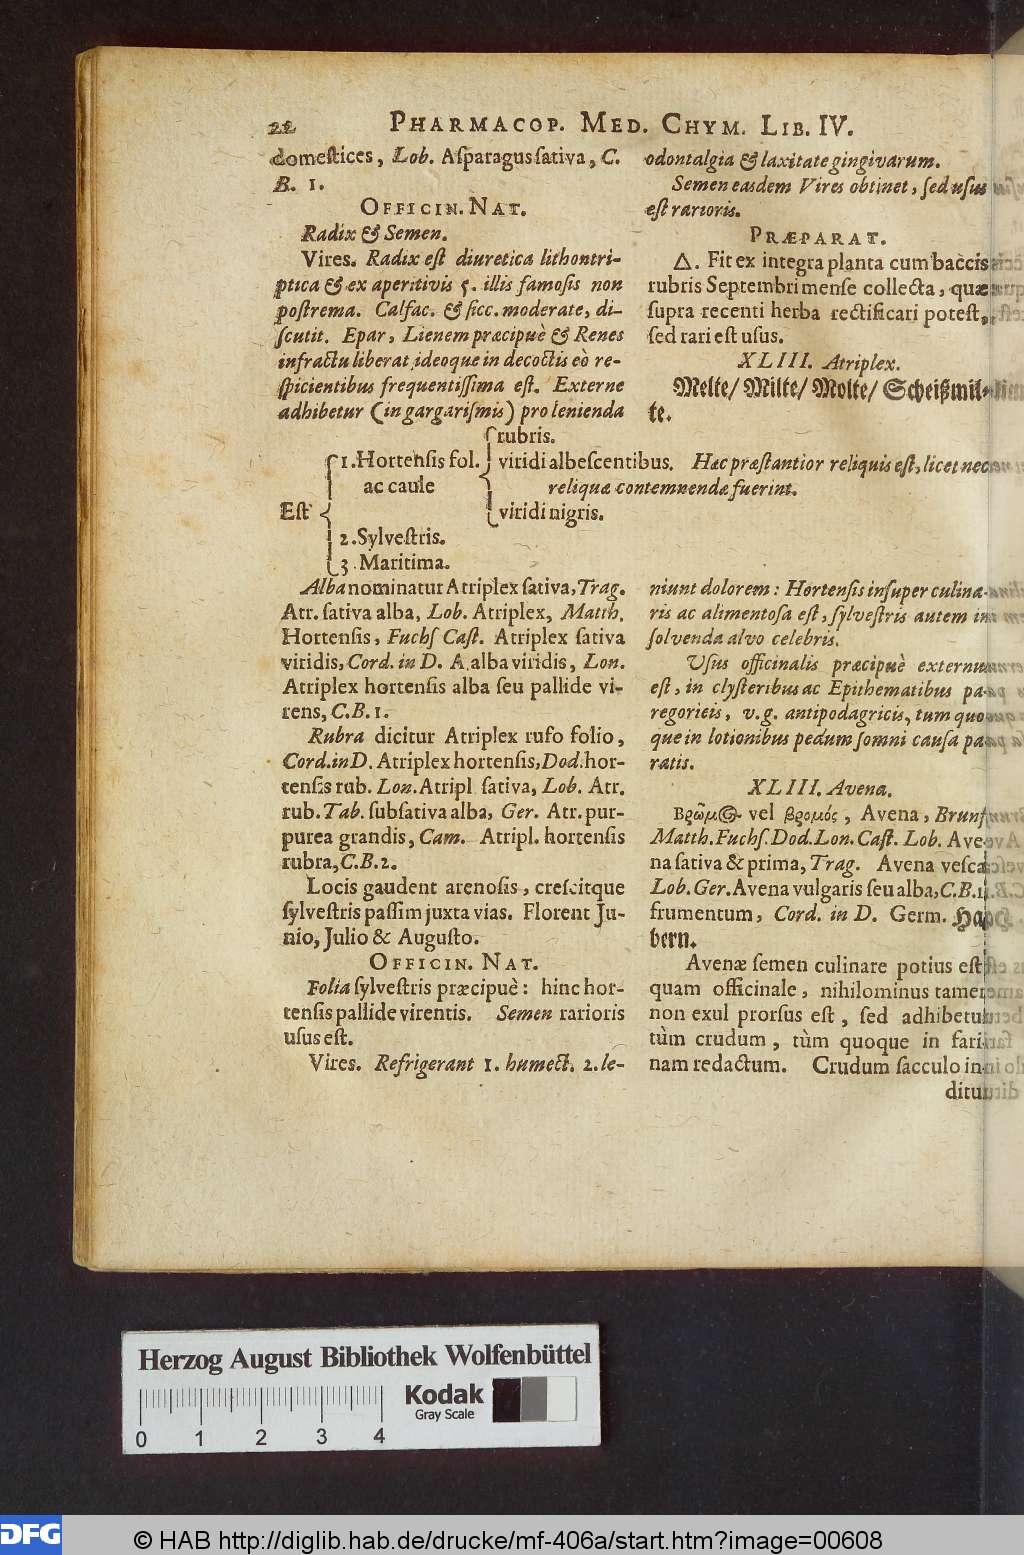 22 PHARMACOP. MED. CHYM. LIB. IV.
domestices, Lob. Asparagus sativa, C.
B. 1.
OFFICIN. NAT.
Radix & Semen.
Vires. Radix est diuretica lithontri-
ptica & ex aperitivis 5. illis famosis non
postrema. Calfac. & sicc. moderate, di-
scutit. Epar, Lienem præcipuè & Renes
infractu liberat, ideoque in decoctis eò re-
spicientibus frequentissima est. Externe
adhibetur (in gargarismis) pro lenienda
odontalgia & laxitate gingivarum.
Semen easdem Vires obtinet, sed usus
est rarioris.
PRÆPARAT.
△. Fit ex integra planta cum baccis
rubris Septembri mense collecta, quæ
supra recenti herba rectificari potest,
sed rari est usus.
XLIII. Atriplex.
Melte/ Milte/ Molte/ Scheißmil-
te.
Est
1. Hortensis fol.
ac caule
rubris.
viridi albescentibus. Hæc præstantior reliquis est, licet nec
reliquæ contemnendæ fuerint.
viridi nigris.
2. Sylvestris.
3. Maritima.
Alba nominatur Atriplex sativa, Trag.
Atr. sativa alba, Lob. Atriplex, Matth.
Hortensis, Fuchs Cast. Atriplex sativa
viridis, Cord. in D. A. alba viridis, Lon.
Atriplex hortensis alba seu pallide vi-
rens, C.B. 1.
Rubra dicitur Atriplex rufo folio,
Cord. in D. Atriplex hortensis, Dod. hor-
tensis rub. Lon. Atripl. sativa, Lob. Atr.
rub. Tab. subsativa alba, Ger. Atr. pur-
purea grandis, Cam. Atripl. hortensis
rubra, C.B. 2.
Locis gaudent arenosis, crescitque
sylvestris passim juxta vias. Florent Ju-
nio, Julio & Augusto.
OFFICIN. NAT.
Folia sylvestris præcipuè: hinc hor-
tensis pallide virentis. Semen rarioris
usus est.
Vires. Refrigerant 1. humect. 2. le-
niunt dolorem: Hortensis insuper culina-
ris ac alimentosa est, sylvestris autem in
solvenda alvo celebris.
Usus officinalis præcipuè externus
est, in clysteribus ac Epithematibus pa-
regoricis, v.g. antipodagricis, tum quo-
que in lotionibus pedum somni causa pa-
ratis.
XLIII. Avena.
Βρῶμος vel βρομός, Avena, Brunf.
Matth. Fuchs. Dod. Lon. Cast. Lob. Ave-
na sativa & prima, Trag. Avena vesca
Lob. Ger. Avena vulgaris seu alba, C.B. 1.
frumentum, Cord. in D. Germ. Ha-
bern.
Avenæ semen culinare potius est
quam officinale, nihilominus tamen
non exul prorsus est, sed adhibetur
tùm crudum, tùm quoque in fari-
nam redactum. Crudum sacculo in-
ditum
Herzog August Bibliothek Wolfenbüttel
Kodak
Gray Scale
0 1 2 3 4
DFG
© HAB http://diglib.hab.de/drucke/mf-406a/start.htm?image=00608